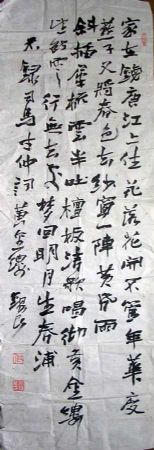 家在錢唐江上住花落花開不管年華度
燕子又將春色去紗窗一陣黃昏雨
斜插犀梳雲半吐檀板清歌唱徹黃金縷
望斷雲行無去處夢回明月生春浦
右錄司馬才仲詞黃金縷